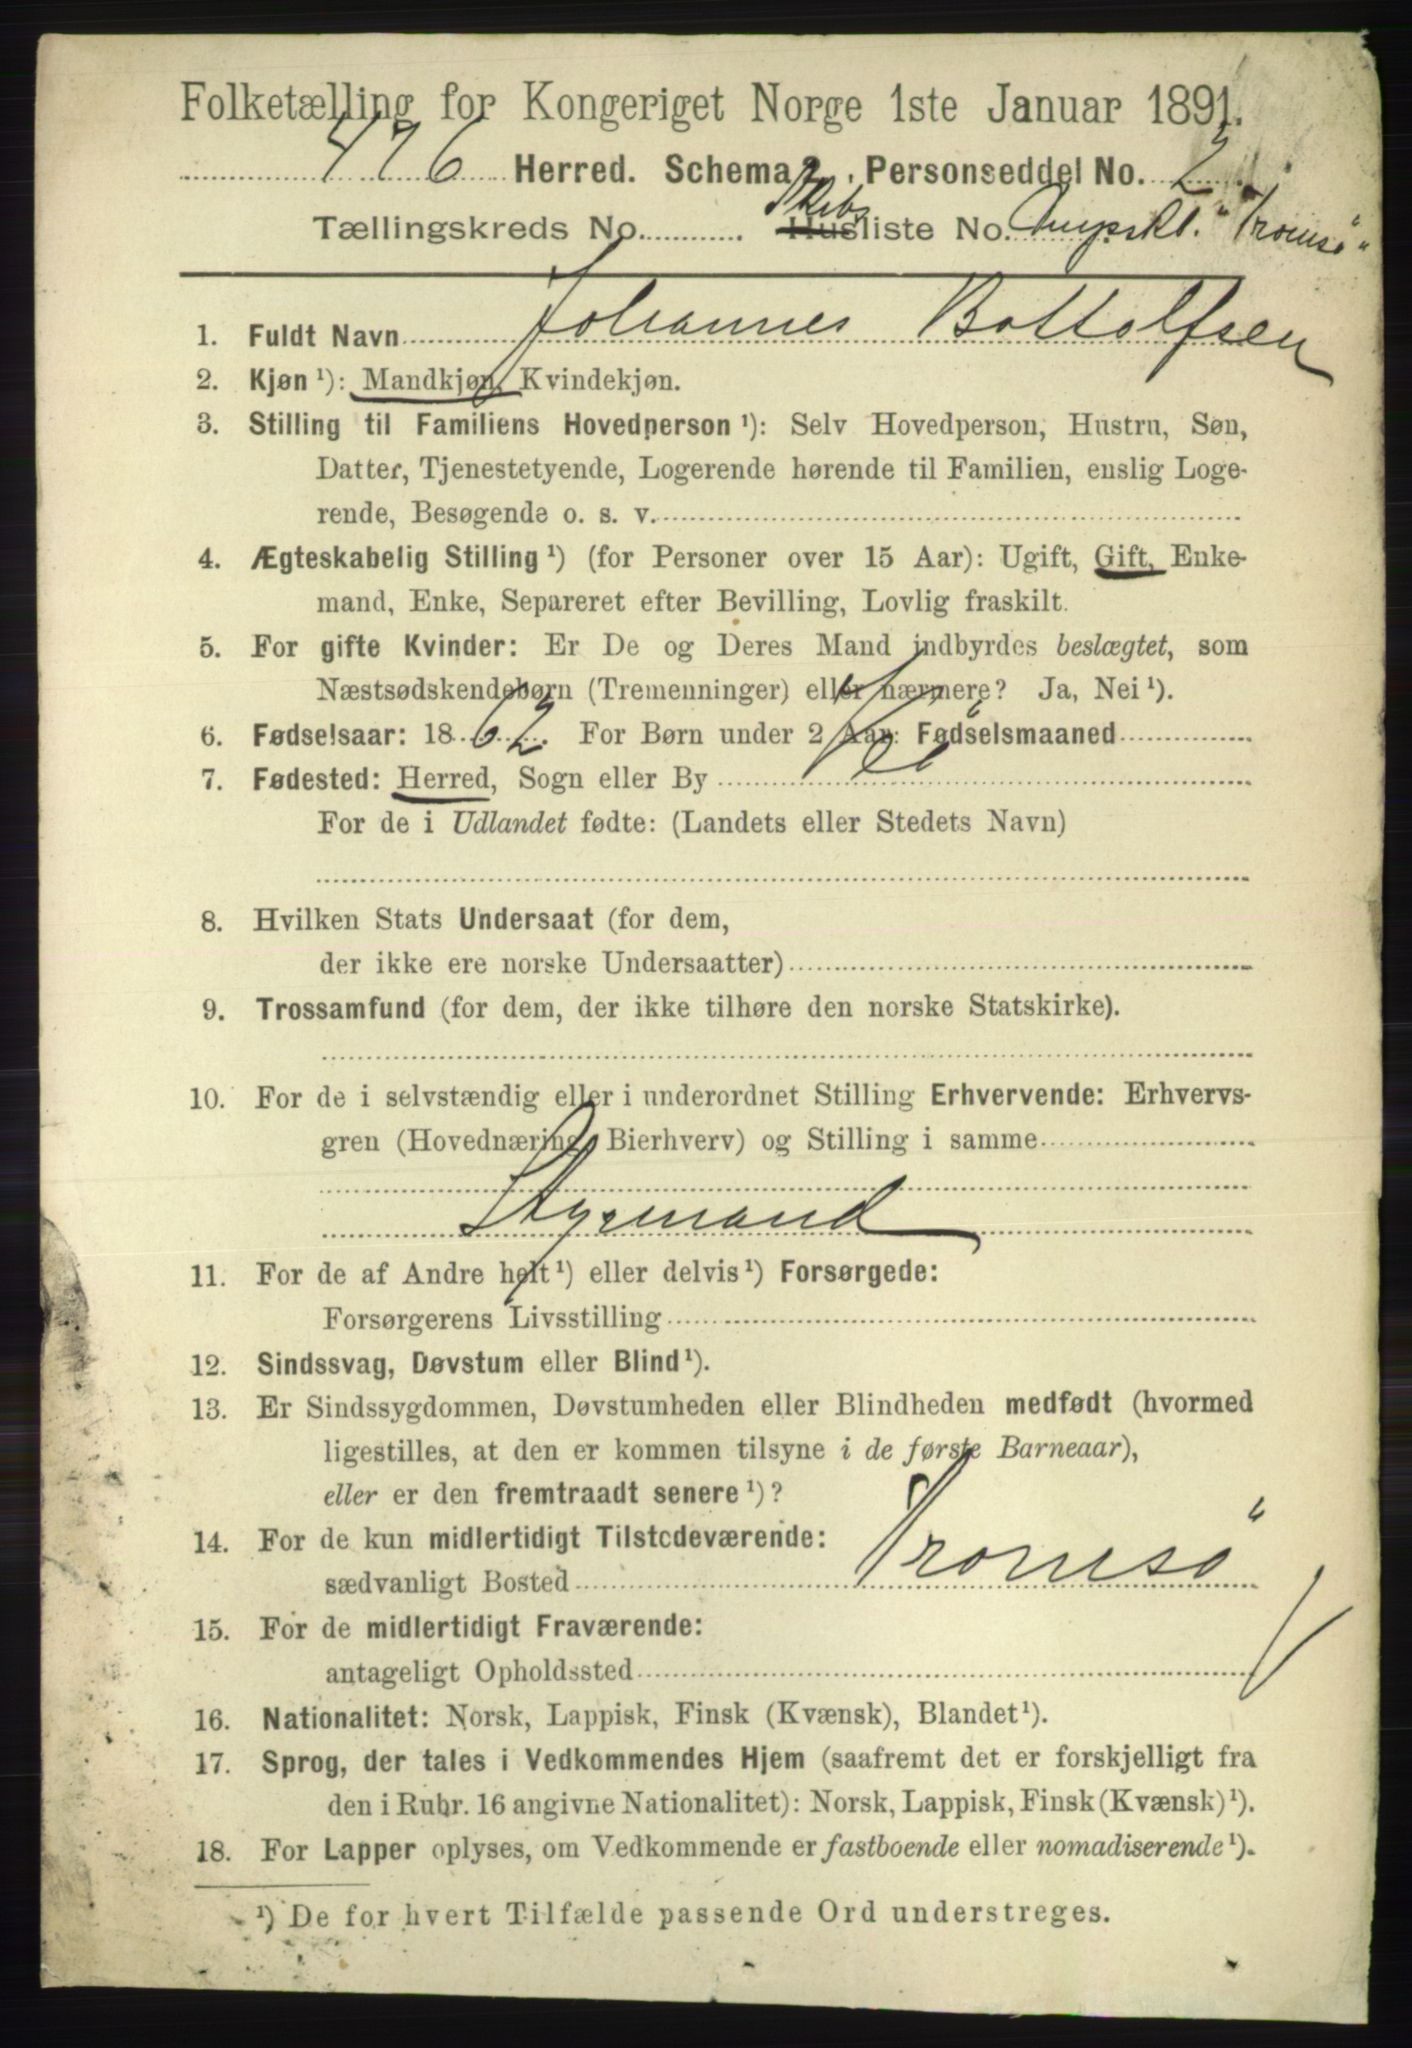 Folketælling for Kongeriget Norge 1ste Januar 1891.
476 Herred. Schema 2. Personseddel No. 2.
Tællingskreds No. Skibs Husliste No. Dampskl. "Tromsö"
1. Fuldt Navn Johannes Bottolfsen
2. Kjøn ¹): Mandkjøn, Kvindekjøn.
3. Stilling til Familiens Hovedperson ¹): Selv Hovedperson, Hustru, Søn,
Datter, Tjenestetyende, Logerende hørende til Familien, enslig Loge-
rende, Besøgende o. s. v.
4. Ægteskabelig Stilling ¹) (for Personer over 15 Aar): Ugift, Gift, Enke-
mand, Enke, Separeret efter Bevilling, Lovlig fraskilt.
5. For gifte Kvinder: Er De og Deres Mand indbyrdes beslægtet, som
Næstsødskendebørn (Tremenninger) eller nærmere? Ja, Nei ¹).
6. Fødselsaar: 1862. For Børn under 2 Aar: Fødselsmaaned
7. Fødested: Herred, Sogn eller By
For de i Udlandet fødte: (Landets eller Stedets Navn)
8. Hvilken Stats Undersaat (for dem,
der ikke ere norske Undersaatter)
9. Trossamfund (for dem, der ikke tilhøre den norske Statskirke).
10. For de i selvstændig eller i underordnet Stilling Erhvervende: Erhvervs-
gren (Hovednæring, Bierhverv) og Stilling i samme
Styrmand
11. For de af Andre helt ¹) eller delvis ¹) Forsørgede:
Forsørgerens Livsstilling
12. Sindssvag, Døvstum eller Blind ¹).
13. Er Sindssygdommen, Døvstumheden eller Blindheden medfødt (hvormed
ligestilles, at den er kommen tilsyne i de første Barneaar),
eller er den fremtraadt senere ¹)?
14. For de kun midlertidigt Tilstedeværende:
sædvanligt Bosted Tromsö
15. For de midlertidigt Fraværende:
antageligt Opholdssted
16. Nationalitet: Norsk, Lappisk, Finsk (Kvænsk), Blandet ¹).
17. Sprog, der tales i Vedkommendes Hjem (saafremt det er forskjelligt fra
den i Rubr. 16 angivne Nationalitet): Norsk, Lappisk, Finsk (Kvænsk) ¹).
18. For Lapper oplyses, om Vedkommende er fastboende eller nomadiserende ¹).
¹) De for hvert Tilfælde passende Ord understreges.